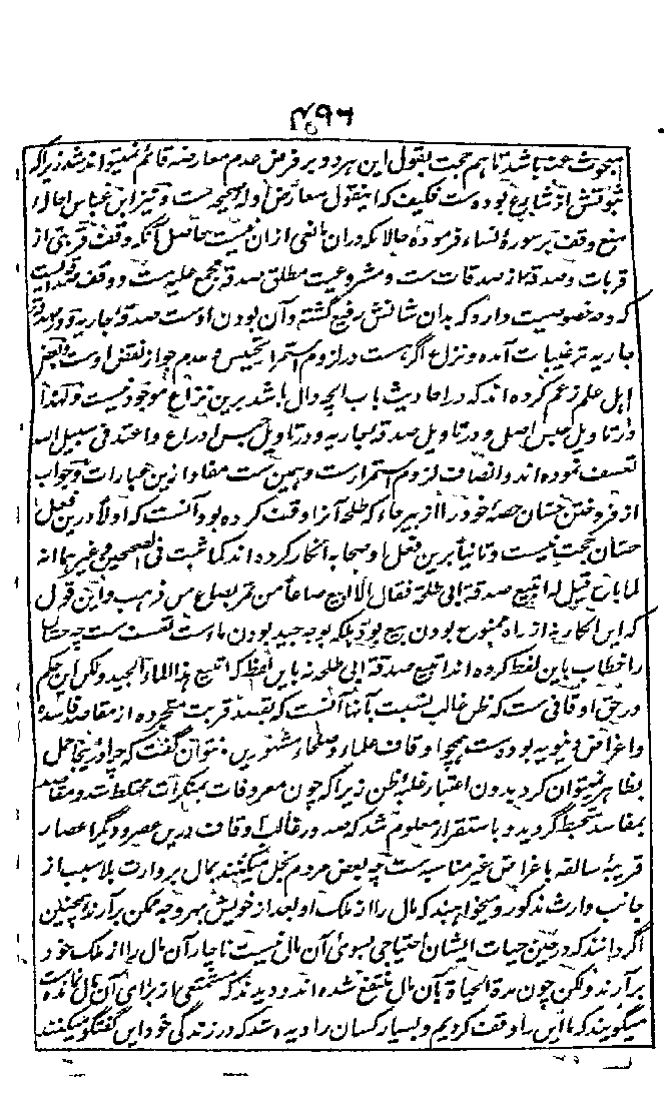 ۴۹۶
مبحوث عنه باشد تا هم حجت بقول این هر دو بر فرض عدم معارضه قائم نمیتواند شد زیراکه
ثبوتش از شارع بوده ست فکیف که اینقول معارض ادلهٔ صحیحه ست و نیز ابن عباس احاله
منع وقف بر سورهٔ نساء فرموده حالانکه دران نافی ازان نیست حاصل آنکه وقف قربتی از
قربات و صدقه از صدقات ست و مشروعیت مطلق صدقه مجمع علیه ست و وقف صدقه ایست
که وجه خصوصیت دارد که بدان شانش رفیع گشته و آن بودن اوست صدقهٔ جاریه و در صدقهٔ
جاریه ترغیبات آمده و نزاع اگر هست در لزوم استمرار تحبیس و عدم جواز نقض اوست و بعض
اهل علم زعم کرده اند که در احادیث باب انچه دال باشد برین نزاع موجود نیست و لهذا
در تاویل حبس اصل و در تاویل صدقهٔ جاریه و در تاویل حبس ادراع و اعتد فی سبیل الله
تعسف نموده اند و انصاف لزوم استمرارست و همین ست مفاد ازین عبارات و جواب
از فروختن حسان حصهٔ خود را از بیرحاء که طلحه آنرا وقف کرده بود آنست که اولا درین فعل
حسان حجت نیست و ثانیا برین فعل او صحابه انکار کرده اند کما ثبت فی الصحیحین و غیرهما انه
لما باع قیل له اتبیع صدقة ابی طلحة فقال الا ابیع صاعا من تمر بصاع من ذهب و این قول
که این انکار نه از راه ممنوع بودن بیع بود بلکه بوجه جید بودن ماء است تعسف ست چه حسان
را خطاب باین لفظ کرده اند اتبیع صدقة ابی طلحه نه باین لفظ که اتبیع هذا الماء الجید ولکن این حکم
در حق اوقافی ست که ظن غالب بنسبت بآنها آنست که بقصد قربت متجرده از مقاصد فاسده
و اغراض دنیویه بوده ست همچو اوقاف علماء و صلحاء متنورین و نتوان گفت که چرا درینجا حمل
بظاهر نمیتوان کرد بدون اعتبار غلبهٔ ظن زیراکه چون معروفات بمنکرات مختلط شد و مقاصد
بمفاسد متخبط گردید و باستقرار معلوم شد که صدور غالب اوقاف درین عصر و دیگر اعصار
قریبهٔ سالفه باغراض غیر مناسبه ست چه بعض مردم بخل میکنند بمال بر وارث بلا سبب از
جانب وارث مذکور و میخواهند که مال را از ملک او بعد از خویش بهر وجه ممکن برآرند همچنین
اگر دانند که در حین حیات ایشان احتیاجی بسوی آن مال نیست ناچار آن مال را از ملک خود
برآرند ولکن چون مدة الحیاة بآن مال منتفع شده اند و دیدند که مستحقی از برای آن مال نمانده است
میگویند که ما این را وقف کردیم و بسیار کسان را دیده شد که در زندگی خود این گفتگو میکنند